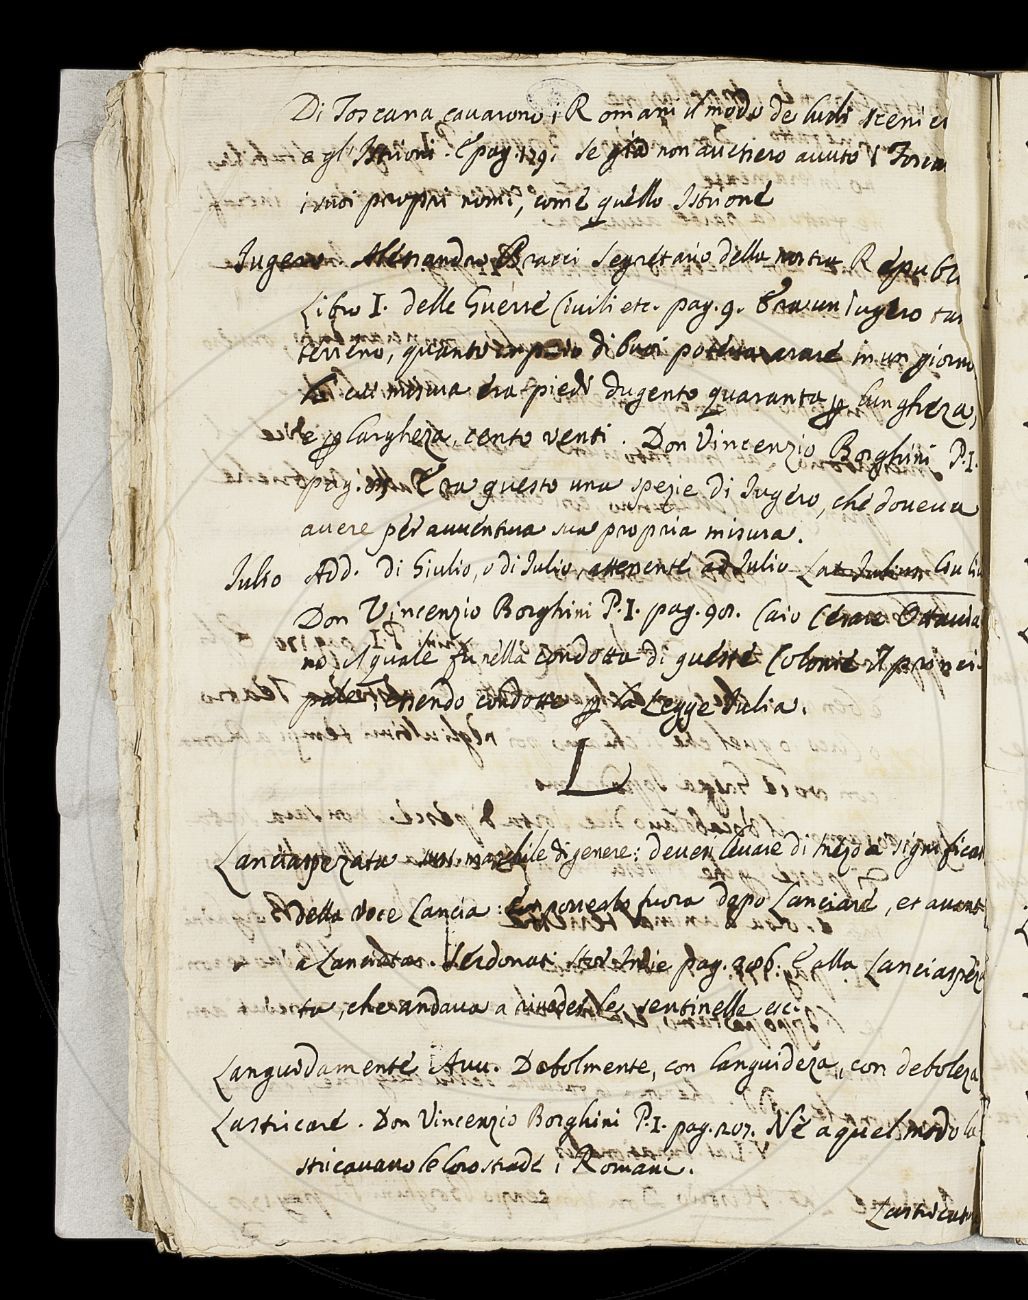 Di Toscana cavarono i Romani il modo de Ludi scenici
e gl' Istrioni. E pag. 129. se già non avessero avuto i Tosca
i suoi proprj nomi, come quello Istrione
Iugero Alessandro Bracci Segretario della nostra Republ
Libro I. delle Guerre Civili etc. pag. 9. Era un Iugero tan
terreno, quanto un pajo di buoi poteva arare in un giorno
La cui misura era piedi dugento quaranta p lungheza,
e p largheza, cento venti. Don Vincenzio Borghini P.I.
pag. Era questo una spezie di Iugero, che doveva
avere per avventura sua propria misura.
Julio Add. di Giulio, o di Julio attenente ad Julio Lat. Julius
Don Vincenzio Borghini P.I. pag. 901. Caio Cesare Ottavia
no il quale fu nella condotta di queste Colonie il princi-
pale, essendo condotte p la Legge Iulia.
L
Lanciaspezata sust. mascule di genere: deven levare di mezo a significar
della voce Lancia: e e porverlo fuora dopo Lanciare, et avant
a Lanciotto. Serdonat. Stor. Indie pag. 286. E alla Lanciaspeza
ta, che andava a riveder le sentinelle etc.
Languidamente Avv. Debolmente, con languideza, con deboleza
Lastricare. Don Vincenzio Borghini P.I. pag. 207. Nè a quel modo la
stricavano le loro strade i Romani.
Lastricato